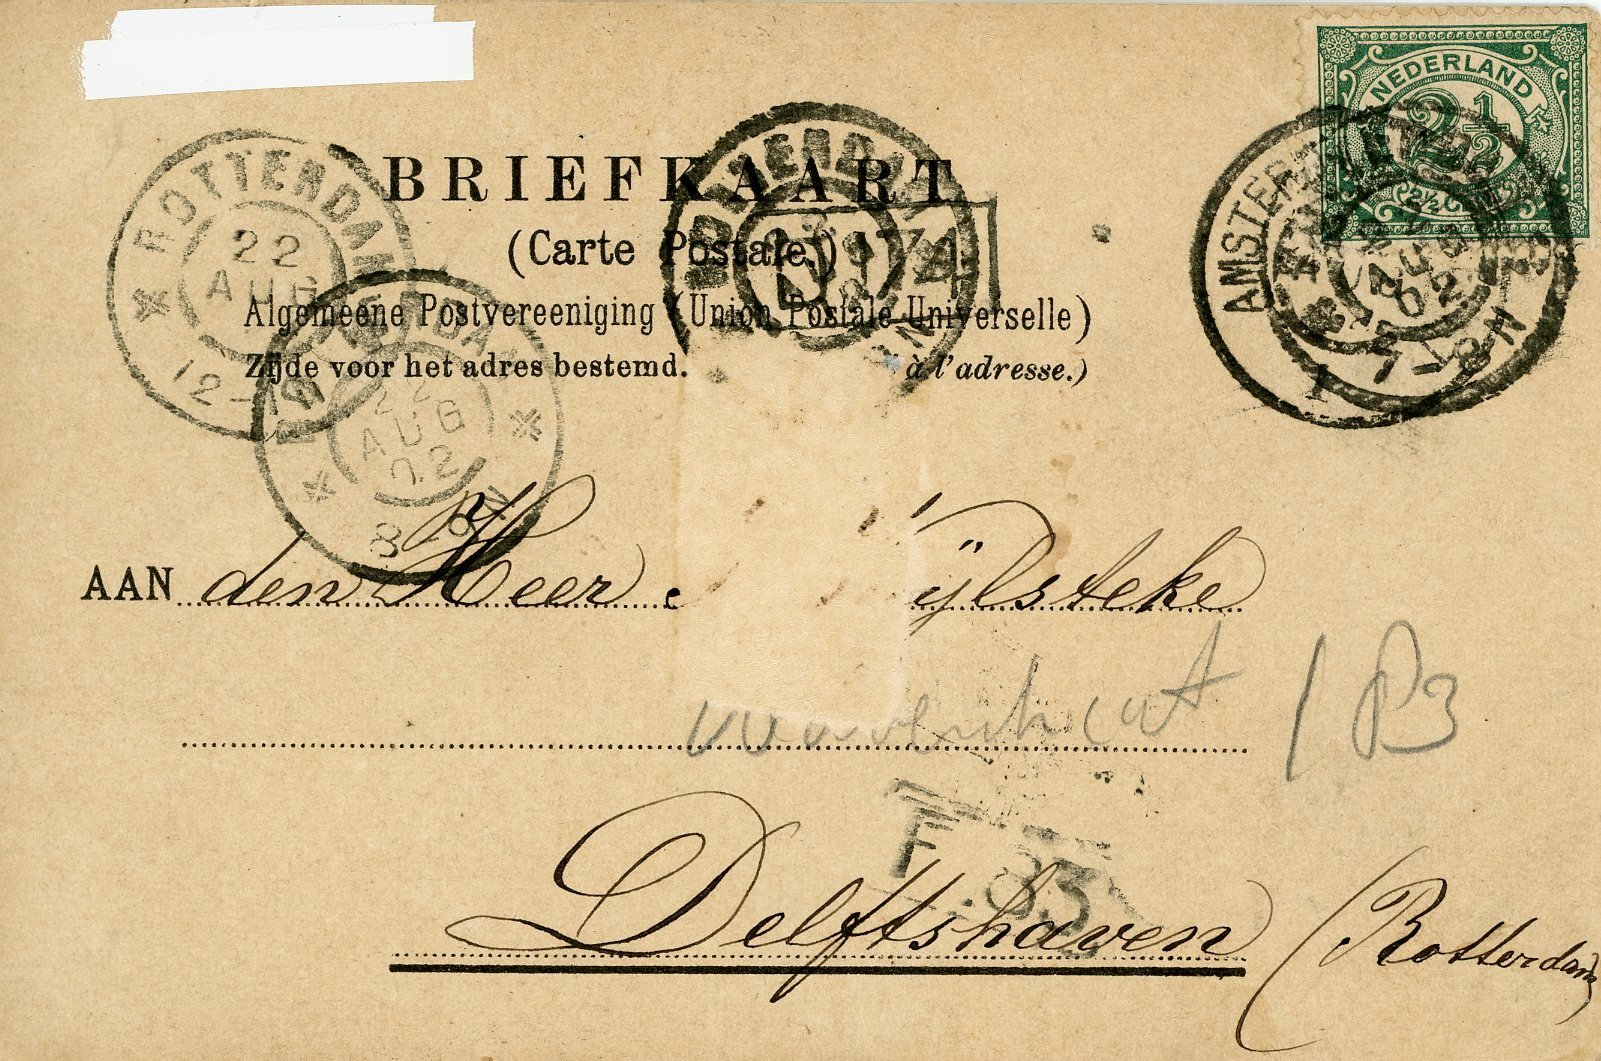 NEDERLAND
2½
2½ C
BRIEFKAART.
(Carte Postale.)
Algemeene Postvereeniging (Union Postale Universelle)
Zijde voor het adres bestemd. à l'adresse.)
ROTTERDAM
22
AUG
12-
22
AUG
02
8
AMSTERD
7-8N
1
AAN den Heer ijlsteke
1 P3
F. 83
Delftshaven (Rotterdam)